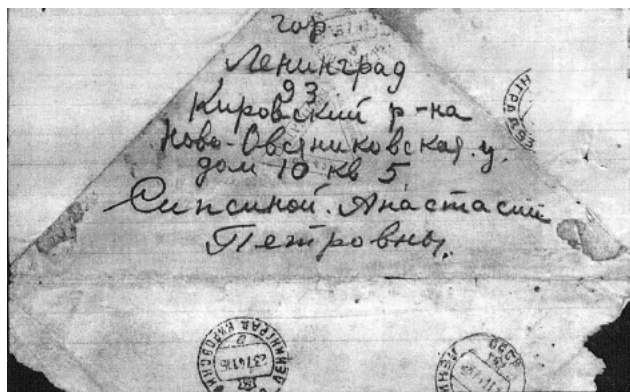 гор
Ленинград
93
Кировский р-на
Ново-Овсяниковская. у.
дом 10 кв 5
Сипсиной. Анастасии
Петровны.
ЛЕНИНГРАД КИРОВСК